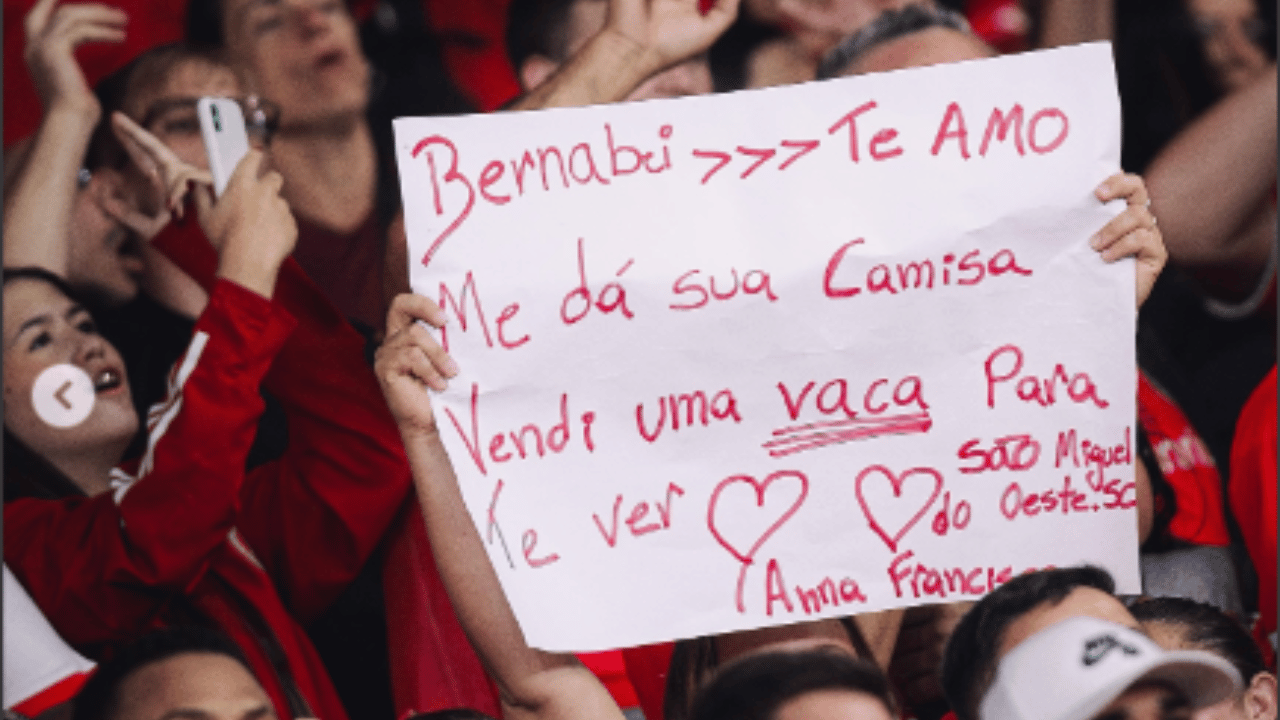 Bernabei >>> Te AMO
Me dá sua Camisa
Vendi uma vaca Para
Te ver
São Miguel
do Oeste.SC
Anna